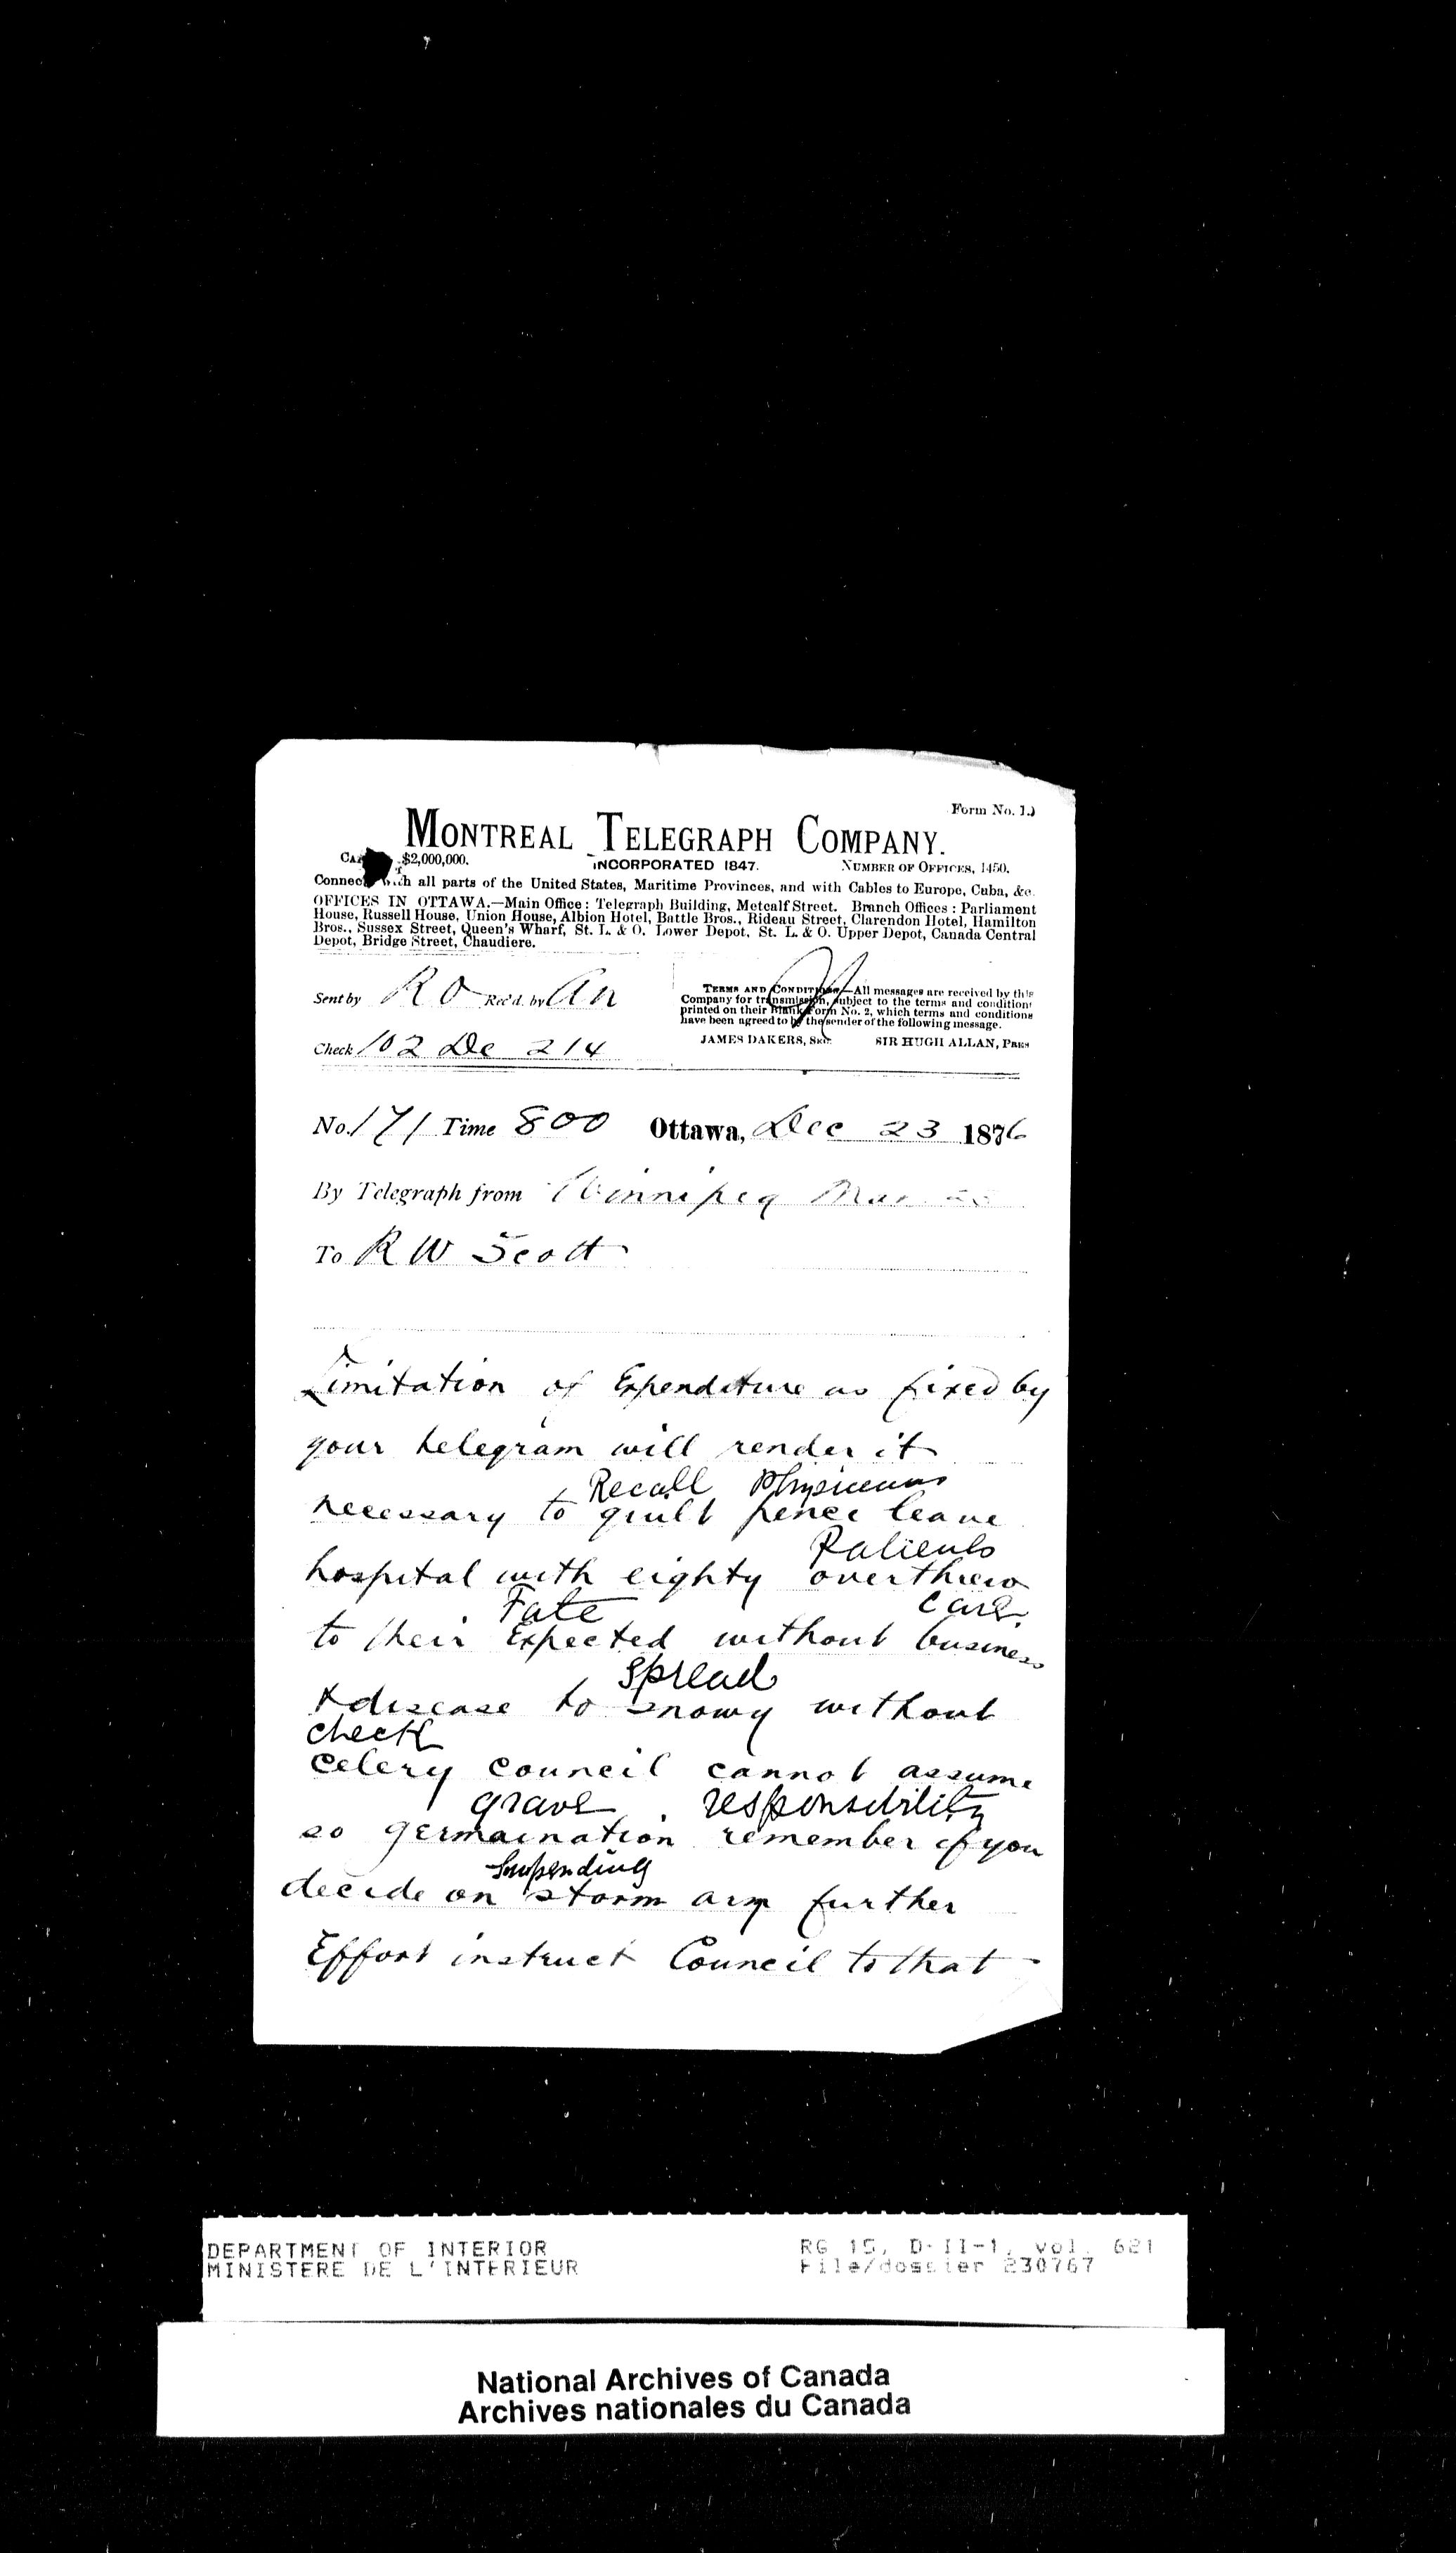 Form No. 1
MONTREAL TELEGRAPH COMPANY.
$2,000,000. INCORPORATED 1847. NUMBER OF OFFICES, 1450.
all parts of the United States, Maritime Provinces, and with Cables to Europe, Cuba, &c.
OFFICES IN OTTAWA.—Main Office: Telegraph Building, Metcalf Street. Branch Offices: Parliament
House, Russell House, Union House, Albion Hotel, Battle Bros., Rideau Street, Clarendon Hotel, Hamilton
Bros., Sussex Street, Queen's Wharf, St. L. & O. Lower Depot, St. L. & O. Upper Depot, Canada Central
Depot, Bridge Street, Chaudiere.
Sent by RO Rec'd. by An
Check 102 De 214
TERMS AND CONDITIONS—All messages are received by this
Company for transmission, subject to the terms and conditions
printed on their Blank Form No. 2, which terms and conditions
have been agreed to by the sender of the following message.
JAMES DAKERS, Sec. SIR HUGH ALLAN, PRES
No. 171 Time 800 Ottawa, Dec 23 1876
By Telegraph from Winnipeg Man
To R W Scott
Limitation of Expenditure as fixed by
your telegram will render it
Recall Physicians
necessary to quilt pence leave
Patients
hospital with eighty overthrew
Fate care
to their Expected without business
Spread
& disease to snowy without
check
celery council cannot assume
grave responsibility
so germaination remember if you
Suspending
decide on storm any further
Effort instruct Council to that
DEPARTMENT OF INTERIOR
MINISTERE DE L'INTERIEUR
RG 15, D-II-1, vol. 621
File/dossier 230767
National Archives of Canada
Archives nationales du Canada